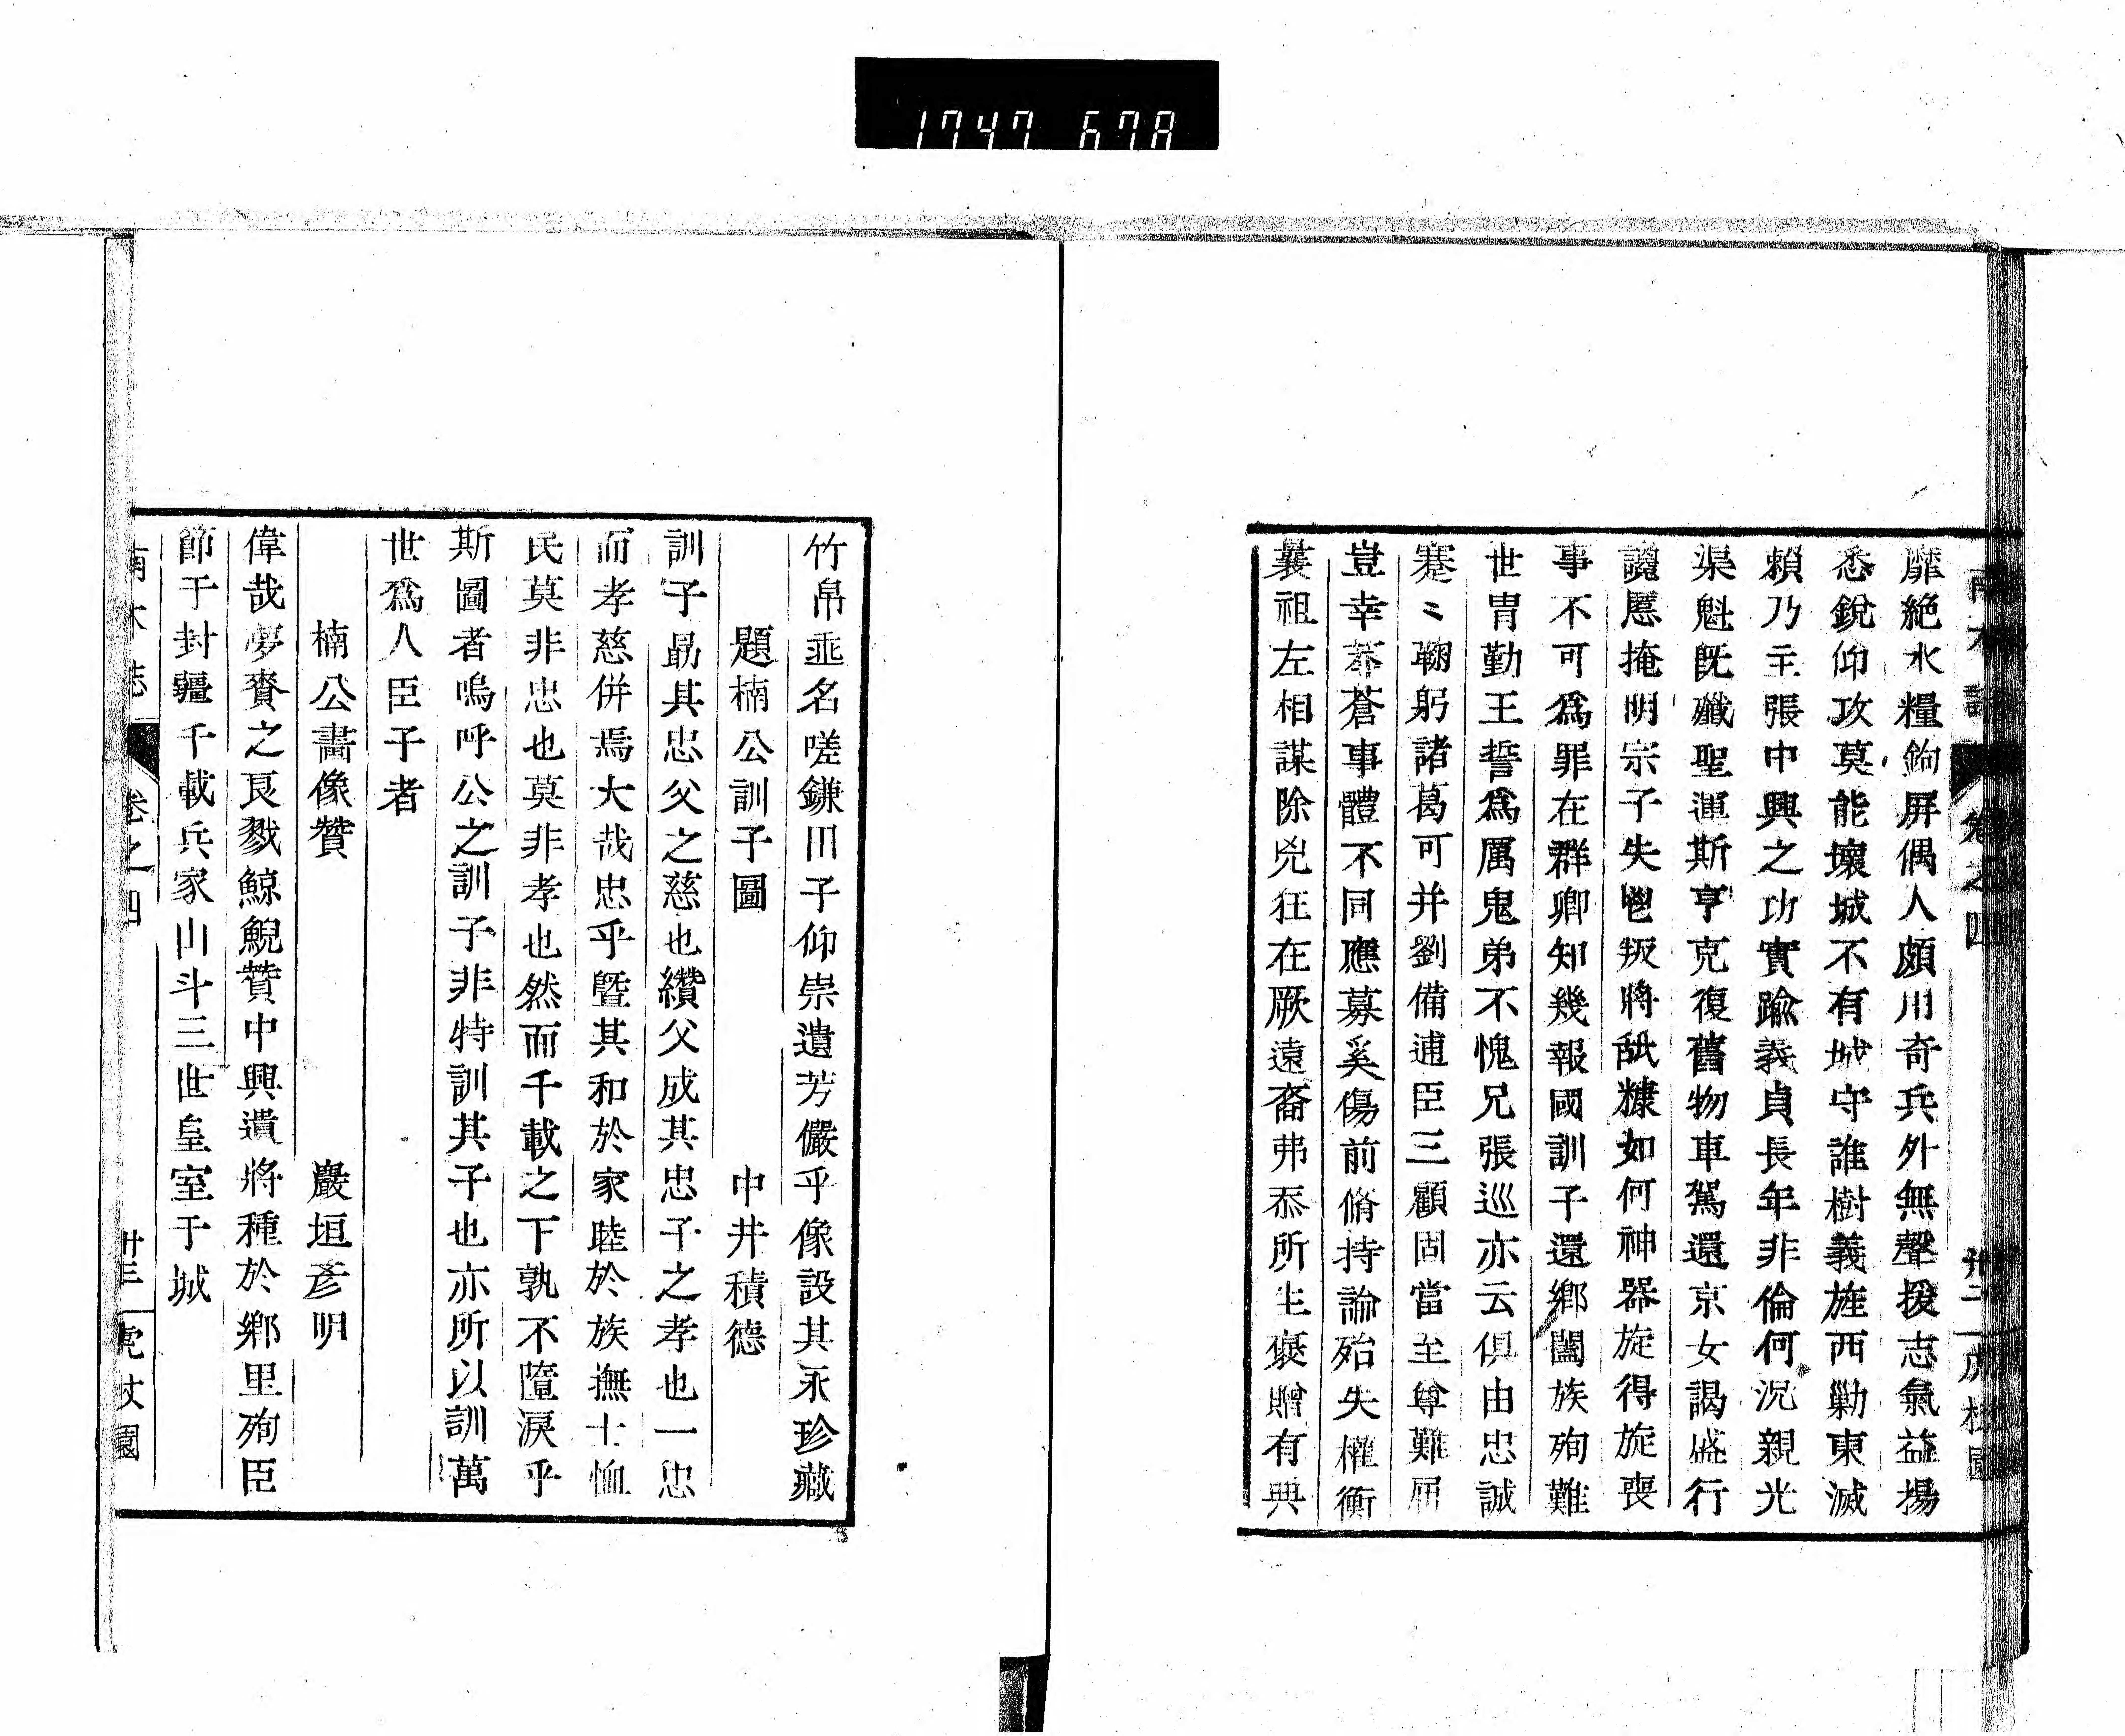 1747 678
靡絶水糧鉤屏偶人頗用奇兵外無聲援志氣益揚
悉銳仰攻莫能壞城不有城守誰樹義旌西勦東滅
賴乃主張中興之功實踰義貞長年非倫何況親光
渠魁既殲聖運斯亨克復舊物車駕還京女謁盛行
讒慝掩明宗子失鬯叛將舐糠如何神器旋得旋喪
事不可爲罪在群卿知幾報國訓子還鄉闔族殉難
世胄勤王誓爲厲鬼弟不愧兄張巡亦云俱由忠誠
蹇〻鞠躬諸葛可并劉備逋臣三顧固當至尊難屈
豈幸莽蒼事體不同應募奚傷前脩持論殆失權衡
曩祖左相謀除兇狂在厥遠裔弗忝所生褒贈有典
卷之四
竹帛垂名嗟鎌田子仰崇遺芳儼乎像設其永珍藏
題楠公訓子圖 中井積德
訓子勗其忠父之慈也纘父成其忠子之孝也一忠
而孝慈併焉大哉忠乎曁其和於家睦於族撫士恤
民莫非忠也莫非孝也然而千載之下孰不墮淚乎
斯圖者嗚呼公之訓子非特訓其子也亦所以訓萬
世爲人臣子者
楠公畫像贊 巖垣彥明
偉哉夢賚之良戮鯨鯢贊中興遺將種於鄉里殉臣
節于封疆千載兵家山斗三世皇室于城
南木誌 卷之四 卅三